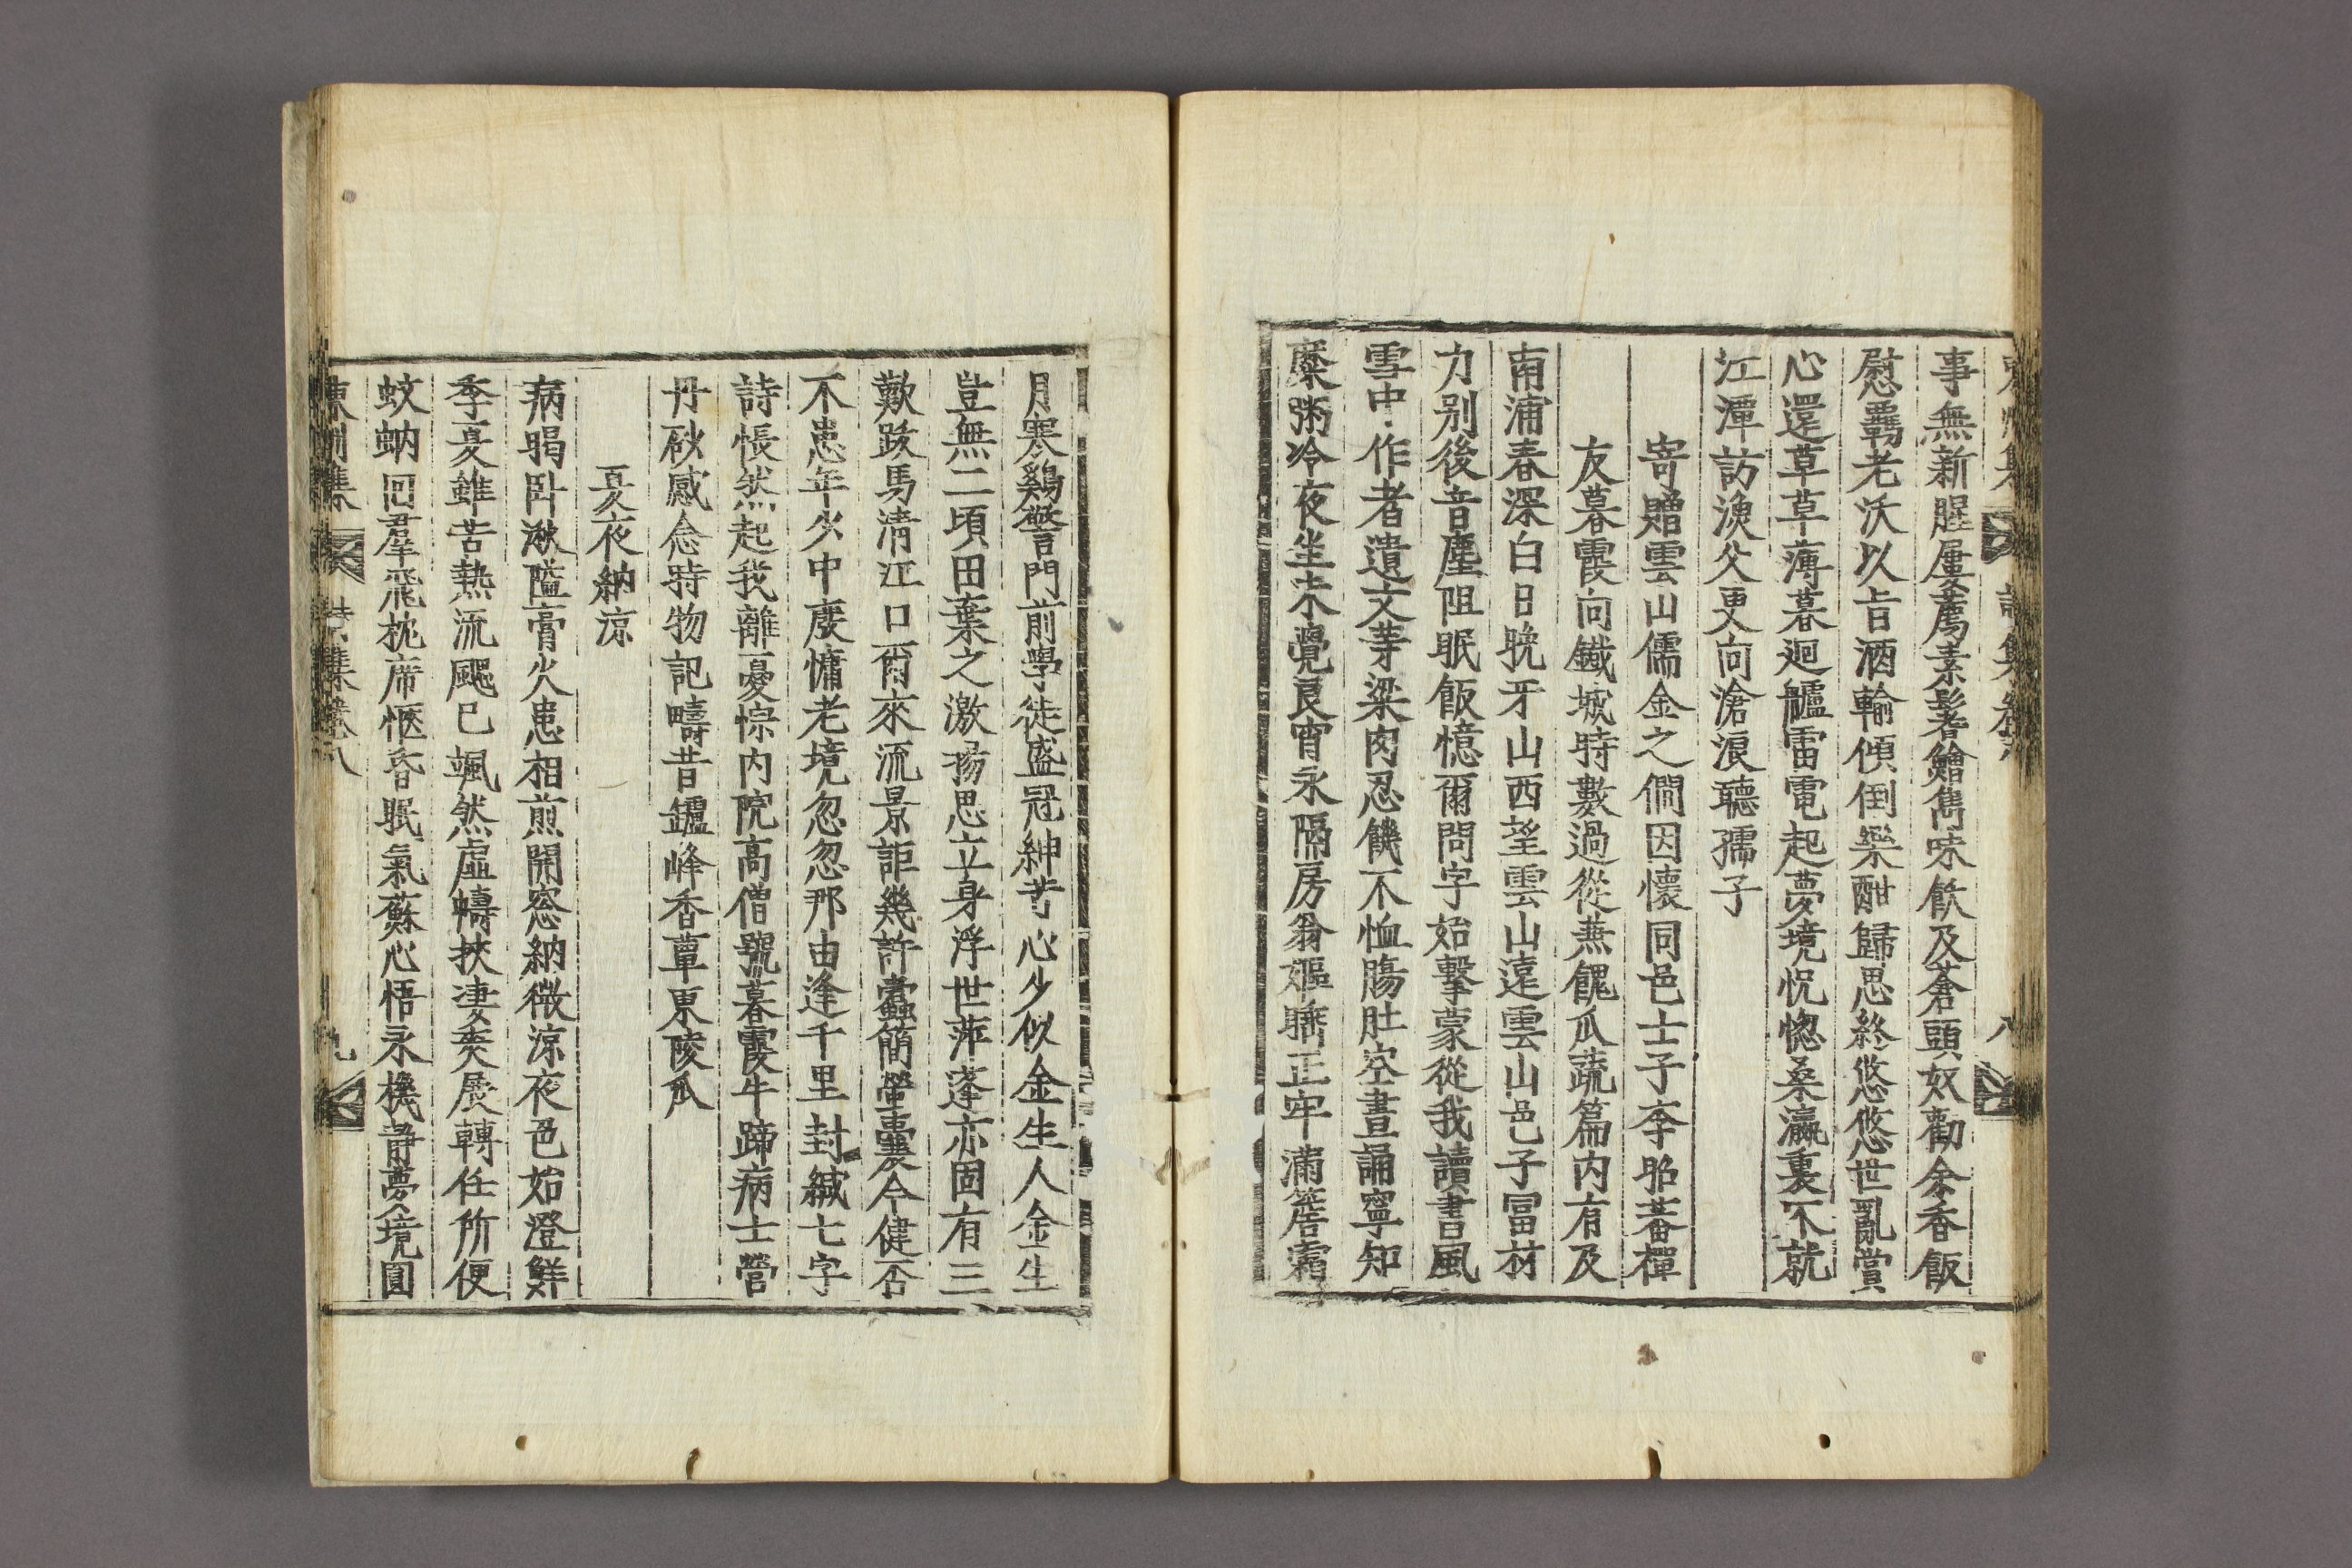 事無新腥屢薦素髻鱠雋味飲及蒼頭奴勸余香飯
慰覊老沃以旨酒輸傾倒樂酣歸思終悠悠世亂賞
心還草草薄暮廻艫雷電起夢境怳惚桑瀛裏不就
江潭訪漁父更向滄浪聽孺子
寄贈雲山儒金之僩因懷同邑士子李昭蕃禪
友暮霞向鐵城時數過從蕪餽瓜蔬篇内有及
南浦春深白日晚牙山西望雲山遠雲山邑子冨材
力别後音塵阻眠飯憶爾問字始擊蒙從我讀書風
雪中作者遺文芽粱肉忍饑不恤腸肚空晝誦寧知
糜粥冷夜坐未覺良宵永隔房翁嫗聽正牢滿簷霜
月寒鷄警門前學徒盛冠紳苦心少似金生人金生
豈無二頃田棄之激揚思立身浮世萍蓬亦固有三
歎跋馬清江口爾來流景詎幾許蠹簡螢囊今健否
不患年少中廢慵老境忽忽那由逢千里封緘七字
詩悵然起我離憂悰内院高僧號暮霞牛蹄病士營
丹砂感念時物記疇昔鑪峰香蕈東陵瓜
夏夜納涼
病暍卧湫隘膏火患相煎開窓納微涼夜色始澄鮮
季夏雖苦熱流颸已颯然虛幬挾凄矣展轉任所便
蚊蚋回羣飛枕席惬昏眠氣蘇心悟永機静夢境圓
東州集 詩集卷八 九